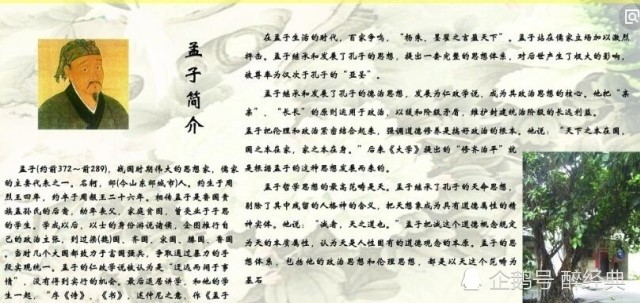 孟子简介
孟子(约前372～前289)，战国时期伟大的思想家，儒家
的主要代表之一。名轲，邹(今山东邹城市)人。约生于周
烈王四年，约卒于周赧王二十六年。相传孟子是鲁国贵
族孟孙氏的后裔，幼年丧父，家庭贫困，曾受业于子思
的学生。学成以后，以士的身份游说诸侯，企图推行自
己的政治主张，到过梁(魏)国、齐国、宋国、滕国、鲁国。
当时几个大国都致力于富国强兵，争取通过暴力的手
段实现统一。孟子的仁政学说被认为是“迂远而阔于事
情”，没有得到实行的机会。最后退居讲学，和他的学
生一起，“序《诗》、《书》，述仲尼之意，作《孟子
在孟子生活的时代，百家争鸣，“杨朱、墨翟之言盈天下”。孟子站在儒家立场加以激烈
抨击。孟子继承和发展了孔子的思想，提出一套完整的思想体系，对后世产生了极大的影响，
被尊奉为仅次于孔子的“亚圣”。
孟子继承和发展了孔子的德治思想，发展为仁政学说，成为其政治思想的核心。他把“亲
亲”、“长长”的原则运用于政治，以缓和阶级矛盾，维护封建统治阶级的长远利益。
孟子把伦理和政治紧密结合起来，强调道德修养是搞好政治的根本。他说：“天下之本在国，
国之本在家，家之本在身。”后来《大学》提出的“修齐治平”就
是根据孟子的这种思想发展而来的。
孟子哲学思想的最高范畴是天。孟子继承了孔子的天命思想，
剔除了其中残留的人格神的含义，把天想象成为具有道德属性的精
神实体。他说：“诚者，天之道也。”孟子把诚这个道德概念规定
为天的本质属性，认为天是人性固有的道德观念的本原。孟子的思
想体系，包括他的政治思想和伦理思想，都是以天这个范畴为
基石
企鹅号 醉经典